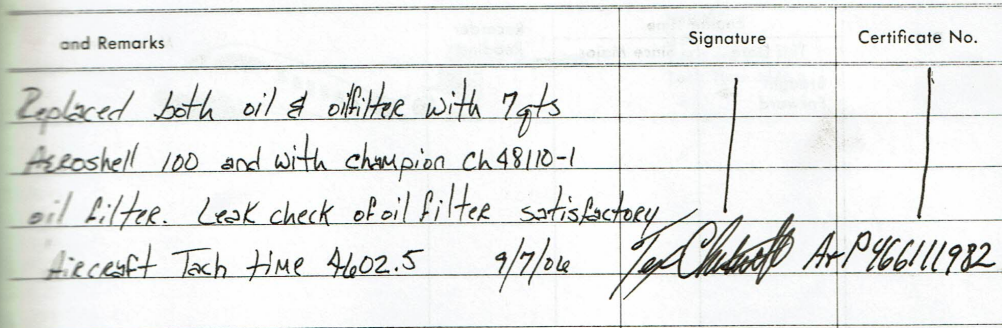 and Remarks Signature Certificate No.
Replaced both oil & oilfilter with 7qts
Aeroshell 100 and with champion Ch48110-1
oil filter. Leak check of oil filter satisfactory
Aircraft Tach time 4602.5 9/7/06 A+P466111982